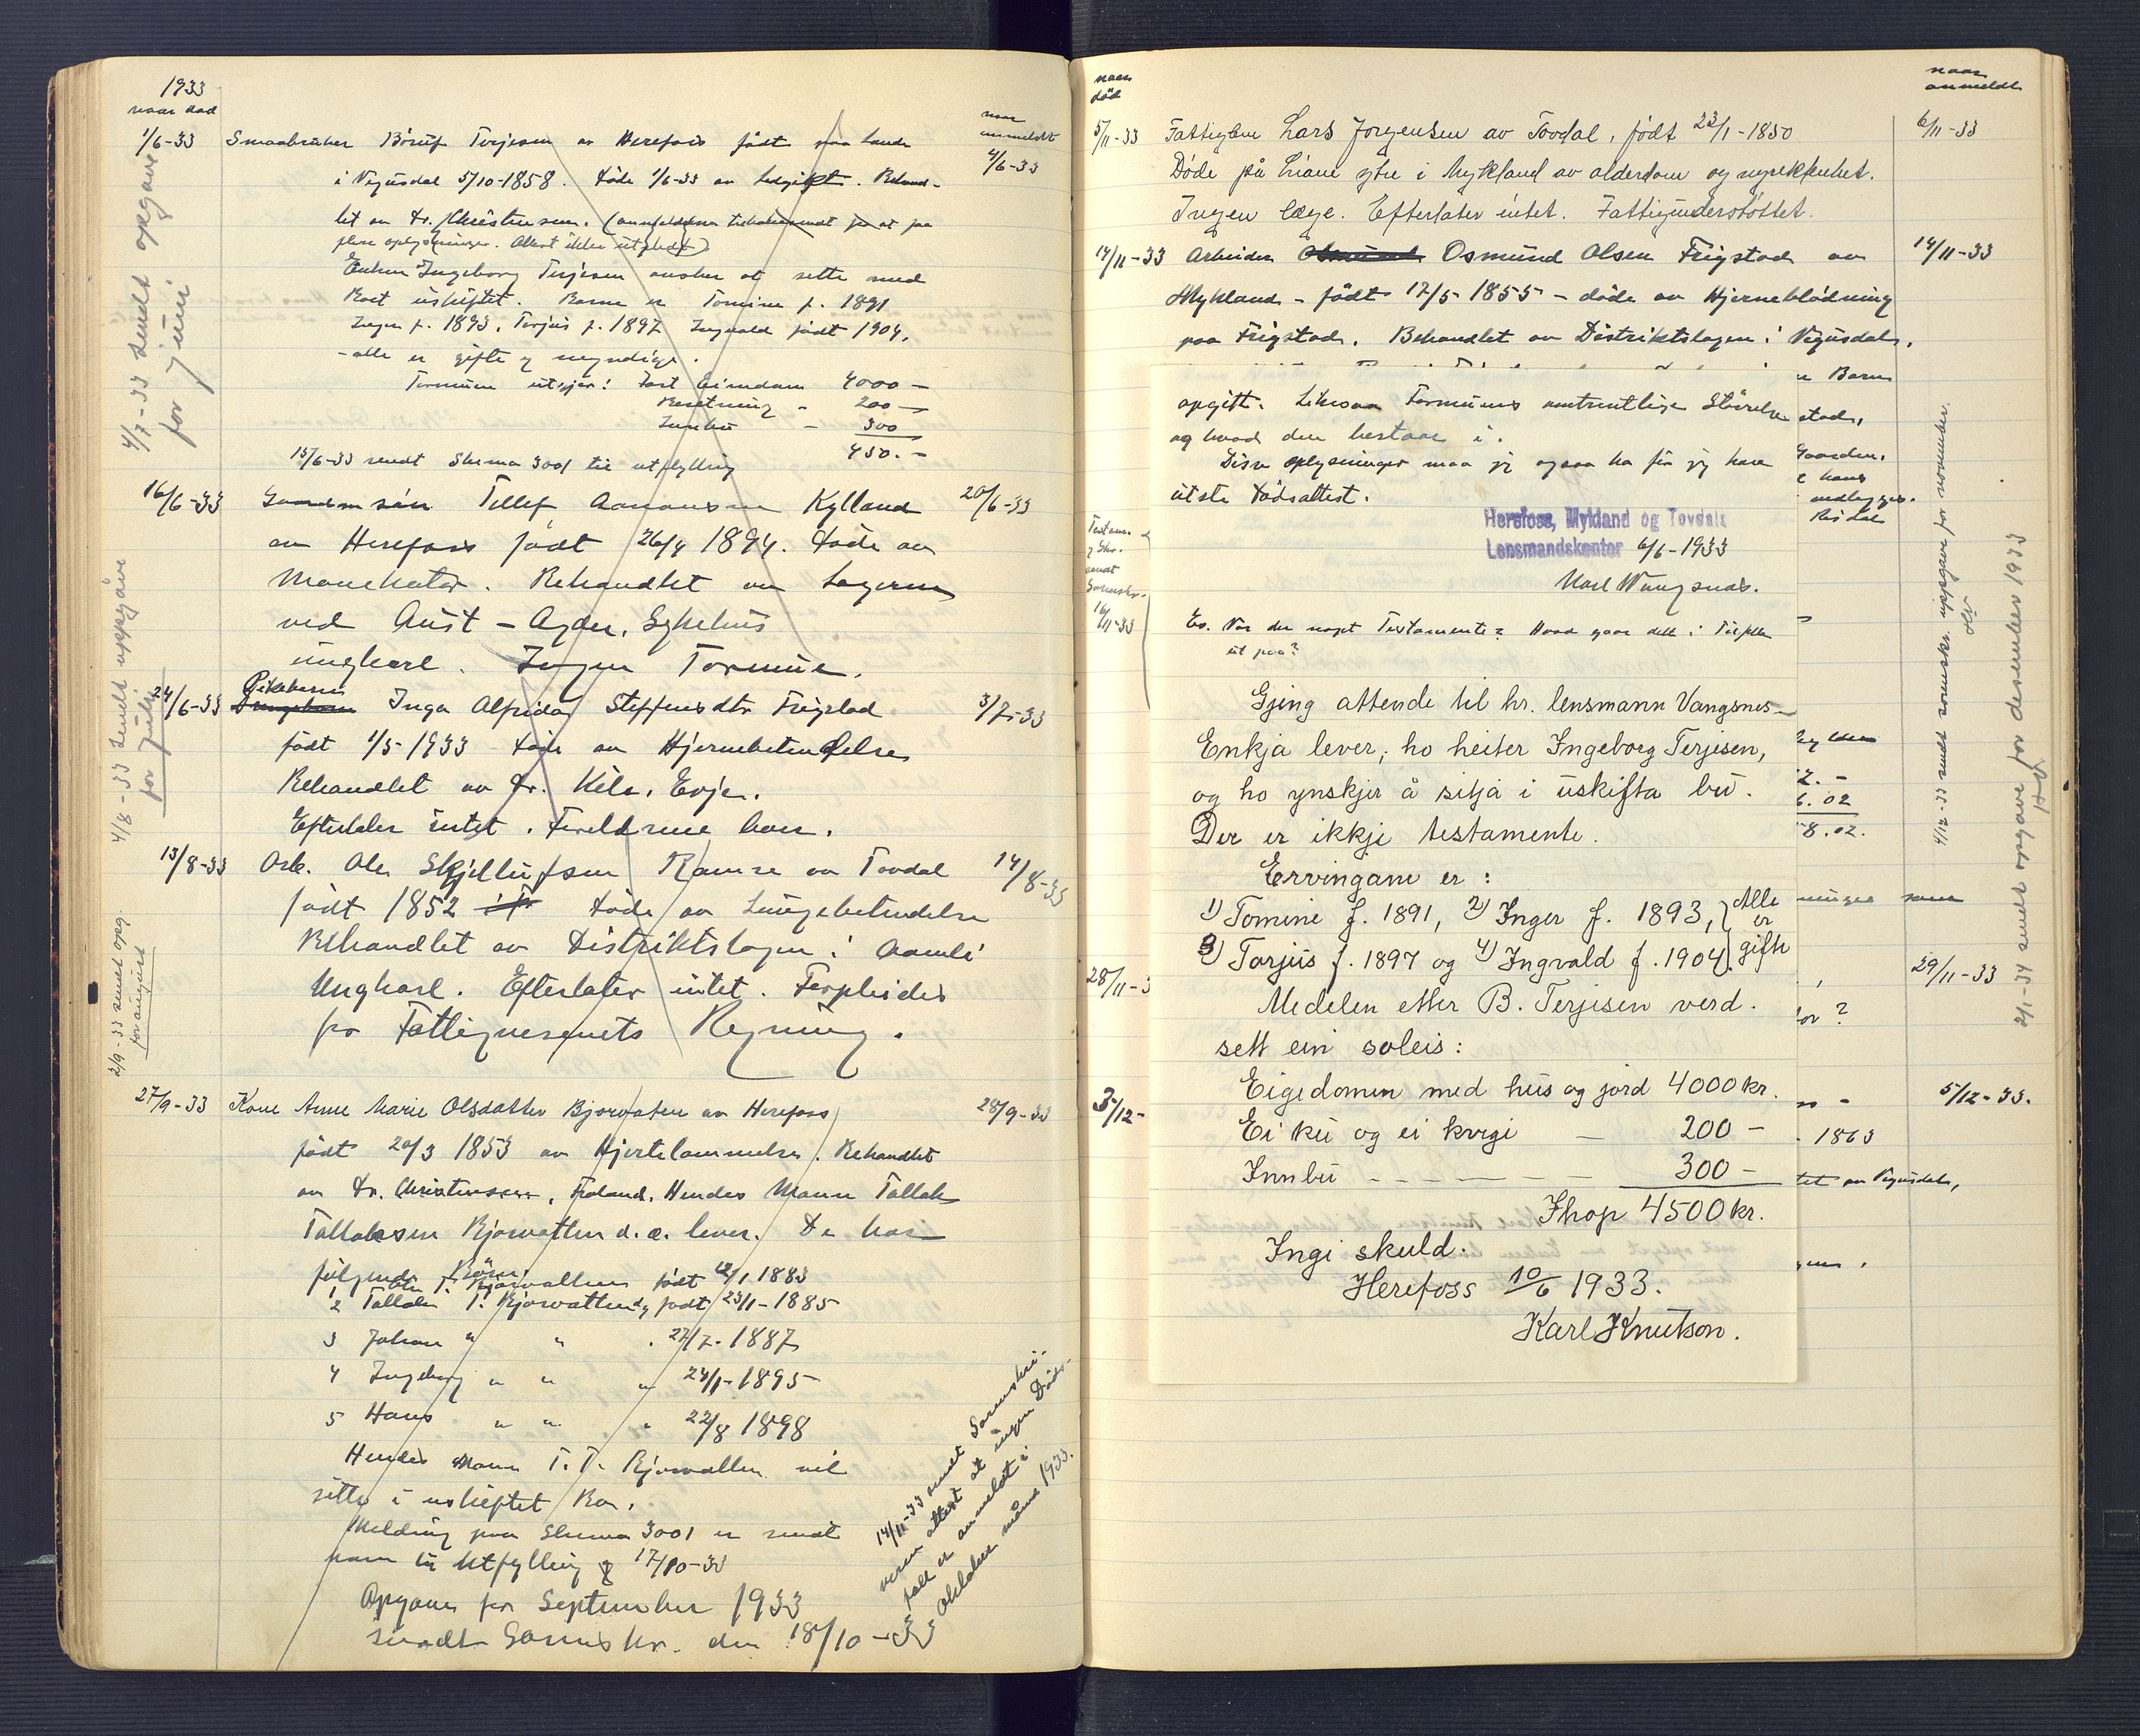 1933
naar död
1/6-33 Smaabruker Böruf Terjesen av Herefoss född paa Lande
naar anmeldt
4/6-33
i Vegusdal 5/10-1858. Döde 1/6-33 av Ledgikt. Behand-
let av Dr. Christensen. (anmeldelsen at faa
flere oplysninger. Attest ikke utstedt)
Enken Ingeborg Terjesen ønsker at sitte med
Boet uskiftet. Barna er Tomine f. 1891
Inger f. 1893, Terjus f. 1897 Ingvald født 1904,
- alle er gifte og myndige.
Formuen utgjør: Fast Eiendom 4000 -
Besetning - 200 -
Innbu - 300
450. -
15/6-33 sendt Skema 3001 til utfylling
4/7-33 sendt opgave
for juni
16/6-33 Gaardm.sön Tellef Aanonsen Kylland 20/6-33
av Herefoss født 26/4 1894. Døde av
Behandlet av Lægerne
ved Aust-Agder, Sykehus
ungkarl. Ingen Formue.
4/8-33 sendt uppgave
for juli
24/6-33 Pikebarn Inga Alfrida Steffensdtr Frigstad 3/7-33
født 1/5-1933 døde av Hjernebetendelse
Behandlet av Dr. Kile, Evje.
Efterlater intet. Foreldrene lever.
13/8-33 Arb. Ole Skjellufsen Ramse av Tovdal 14/8-33
født 1852 døde av Lungebetendelse
Behandlet av Distriktslægen i Aamli
Ungkarl. Efterlater intet. Forpleides
for Fattigvesenets Regning.
2/9-33 sendt opg.
for august
27/9-33 Kone Anne Marie Olsdatter Bjorvatten av Herefoss 28/9-33
født 20/3 1853 av Hjertelammelse. Behandlet
av Dr. Christensen, Froland. Hendes Mann Tallak
Tallaksen Bjorvatten d.e. lever. De har
følgende Børn:
1 Ole T. Bjorvatten født 12/1 1883
2 Tallak T. Bjorvatten født 23/1-1885
3 Johan " " . 27/7-1887
4 Ingeborg " " " 24/1-1895
5 Hans " " " 22/8 1898
Hendes Mann T.T. Bjorvatten vil
sitte i uskiftet Bo.
Melding paa Skema 3001 er sendt
ham til Utfylling 17/10-33
Opgaver for September 1933
sendt Sorenskr. den 18/10-33
14/11-33 sendt Sorenskri-
veren attest at ingen Döds-
fall er anmeldt i
oktober måned 1933.
naar
död
naar
anmeldt
5/11-33 Fattiglem Lars Jørgensen av Tovdal, født 23/1-1850 6/11-33
Döde på Liane ytre i Mykland av alderdom og
Ingen læge. Efterlater intet. Fattigunderstøttet.
14/11-33 Arbeider Osmund Olsen Frigstad av 14/11-33
Mykland - født 17/5 1855 - døde av Hjerneblødning
paa Frigstad. Behandlet av Distriktslægen i Vegusdal.
Barn
opgitt. Likesaa Formuens omtrentlige Størrelse
og hvad den bestaar i.
Disse oplysninger maa jeg ogsaa ha før jeg kan
utste dødsattest.
Herefoss, Mykland og Tovdals
Lensmandskontor 6/6-1933
Karl Vangsnes.
Es. Var der noget Testamente? Hvad gaar det i Tilfelle
ut paa?
Gjeng attende til hr. lensmann Vangsnes -
Enkja lever; ho heiter Ingeborg Terjesen,
og ho ynskjer å sitja i uskifta bu.
Der er ikkje testamente.
Ervingane er :
1) Tomine f. 1891, 2) Inger f. 1893, } Alle er
3) Tarjus f. 1897 og 4) Ingvald f. 1904 } gifte
Medelen etter B. Terjesen verd.
sett ein soleis :
Eigedomen med hus og jord 4000 kr.
Ei ku og ei kvigi - 200 -
Innbu - - - - - 300 -
Ihop 4500 kr.
Ingi skuld.
Herefoss 10/6 1933.
Karl Knutson.
Testam.
Sorenskr.
16/11-33
stad,
Gaarden.
hans
vedlegges.
6.02
8.02.
28/11-3
29/11-33
3/12-
5/12-33.
. 1863
av Vegusdal,
4/12-33 sendt sorenskr. uppgave for november.
2/1-34 sendt opgave for desember 1933